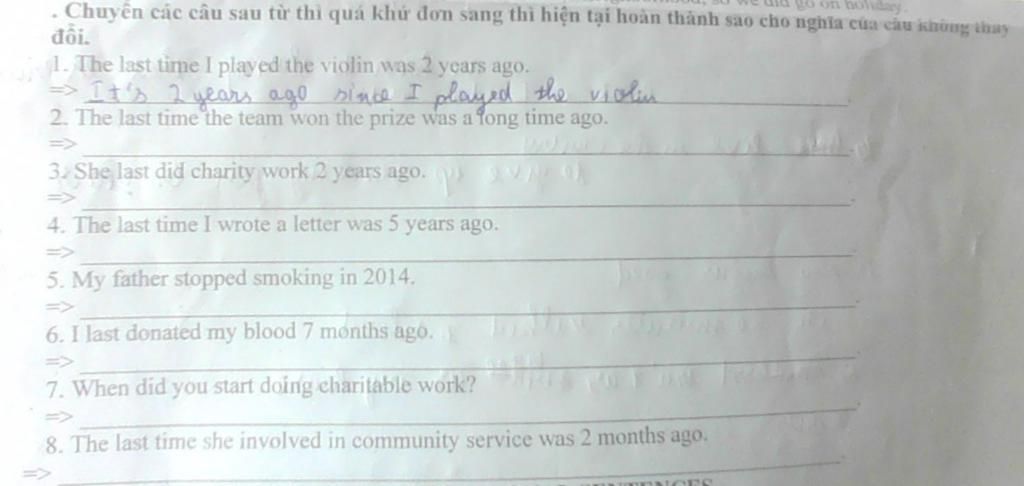 go on holiday.
. Chuyển các câu sau từ thì quá khứ đơn sang thì hiện tại hoàn thành sao cho nghĩa của câu không thay
đổi.
1. The last time I played the violin was 2 years ago.
=> It's 2 years ago since I played the violin
2. The last time the team won the prize was a long time ago.
=>
3. She last did charity work 2 years ago.
=>
4. The last time I wrote a letter was 5 years ago.
=>
5. My father stopped smoking in 2014.
=>
6. I last donated my blood 7 months ago.
=>
7. When did you start doing charitable work?
=>
8. The last time she involved in community service was 2 months ago.
=>